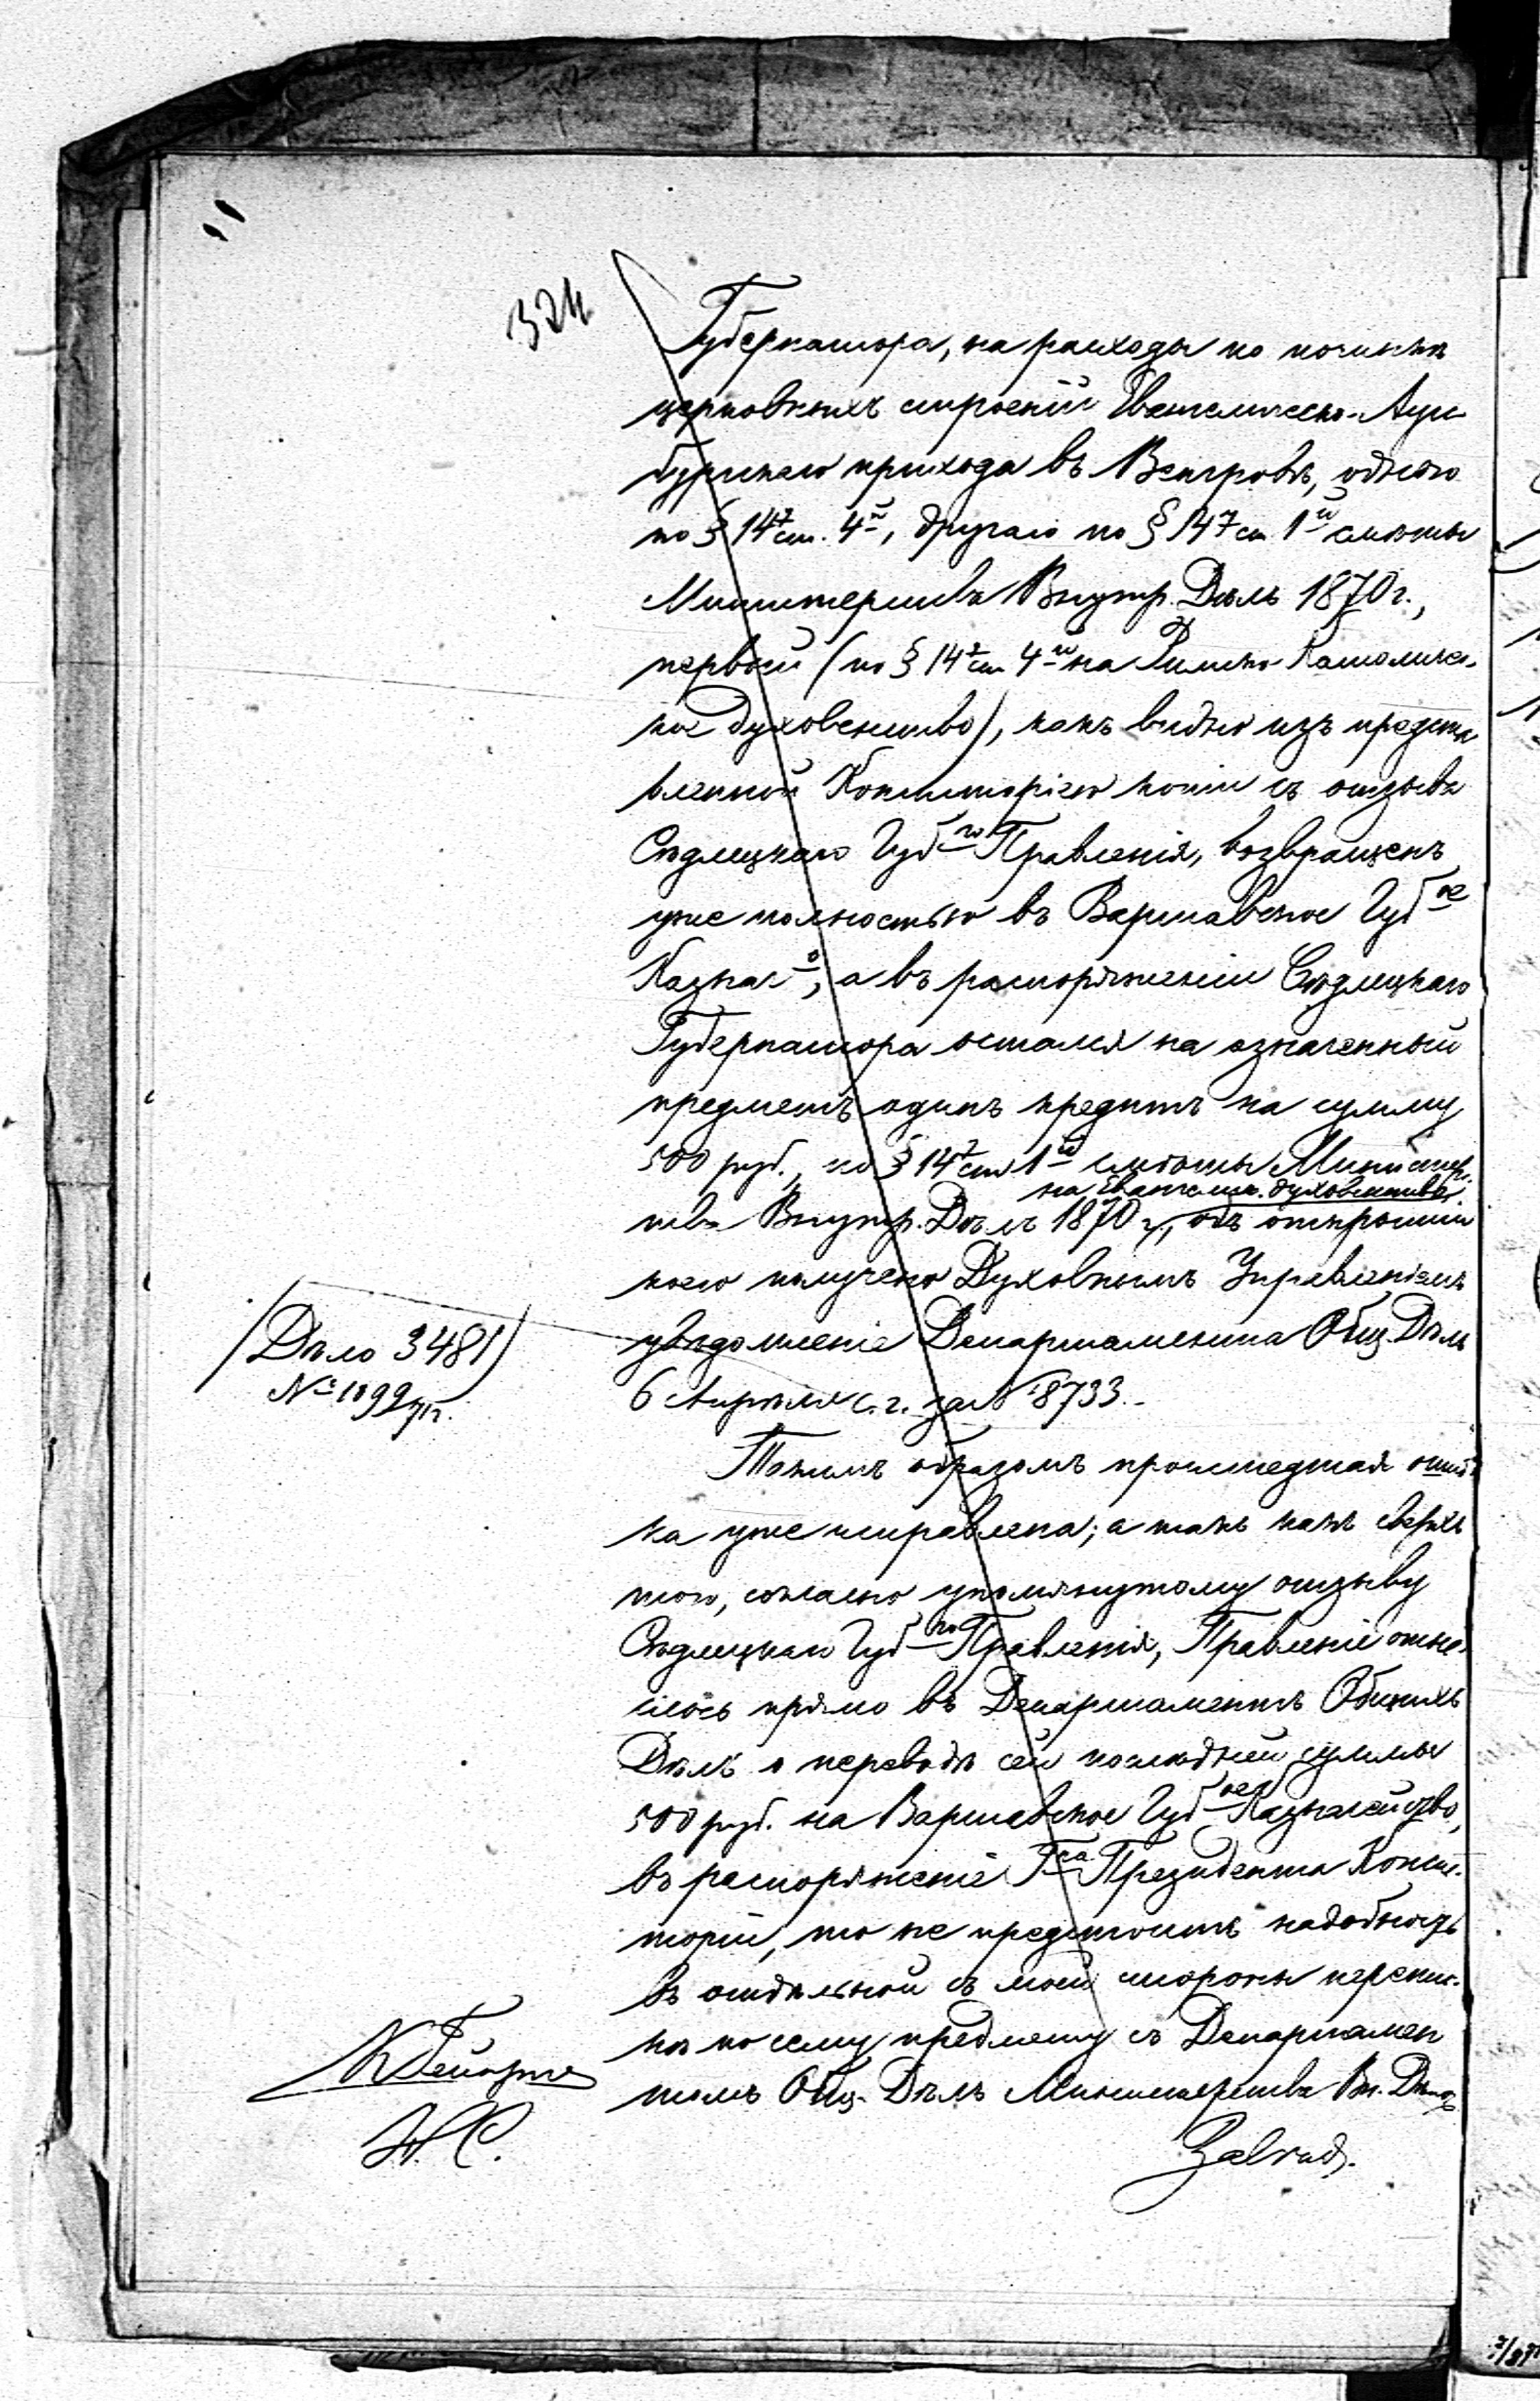 324
Губернатора, на расходы по починкѣ
церковныхъ строеній Евангелическо-Аугс
бургскаго прихода въ Венгровѣ, одного
по § 147 ст. 4й, другаго по § 147 ст 1й смѣты
Министерства Внутр. Дѣлъ 1870 г.,
первый (по § 147 ст 4й на Римско-Католичес-
кое духовенство), какъ видно изъ предста
вленной Консисторіею копіи съ отзыва
Сѣдлецкаго Губго Правленія, возвращенъ
уже полностью въ Варшавское Губое
Казнач.о, а въ распоряженіи Сѣдлецкаго
Губернатора остался на означенный
предметъ одинъ кредитъ на сумму
500 руб., по § 147 ст 1й смѣты Министер.
на Евангелич. духовенство,
тва Внутр. Дѣлъ 1870 г., объ открытіи
коего получено Духовнымъ Управленіемъ
увѣдомленіе Департамента Общ. Дѣлъ
6 Апрѣля с. г. за № 8733.-
(Дѣло 3481)
№ 1099/71 г.
Такимъ образомъ происшедшая ошиб
ка уже исправлена; а такъ какъ сверхъ
того, согласно упомянутому отзыву
Сѣдлецкаго Губго Правленія, Правленіе отне-
слось прямо въ Департаментъ Общихъ
Дѣлъ о переводѣ сей послѣдней суммы
500 руб. на Варшавское Губое Казначейство,
въ распоряженіе Гна Президента Консис-
торіи, то не предстоитъ надобность
въ отдѣльной съ моей стороны перепис-
кѣ по сему предмету съ Департамен
томъ Общ. Дѣлъ Министерства Вн. Дѣлъ
Н. С.